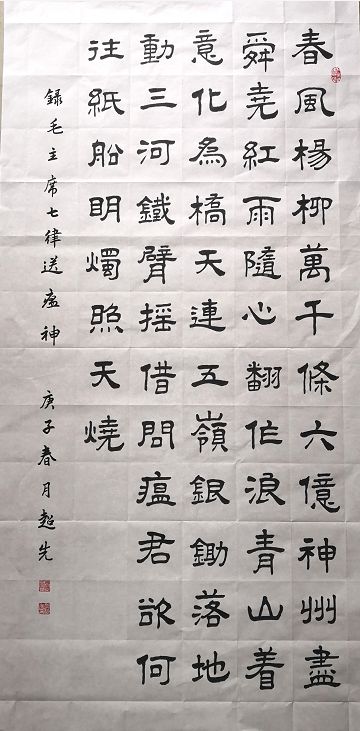 春風楊柳萬千條六億神州盡
舜堯紅雨隨心翻作浪青山着
意化為橋天連五嶺銀鋤落地
動三河鐵臂搖借問瘟君欲何
往紙船明燭照天燒
録毛主席七律送瘟神 庚子春月超先